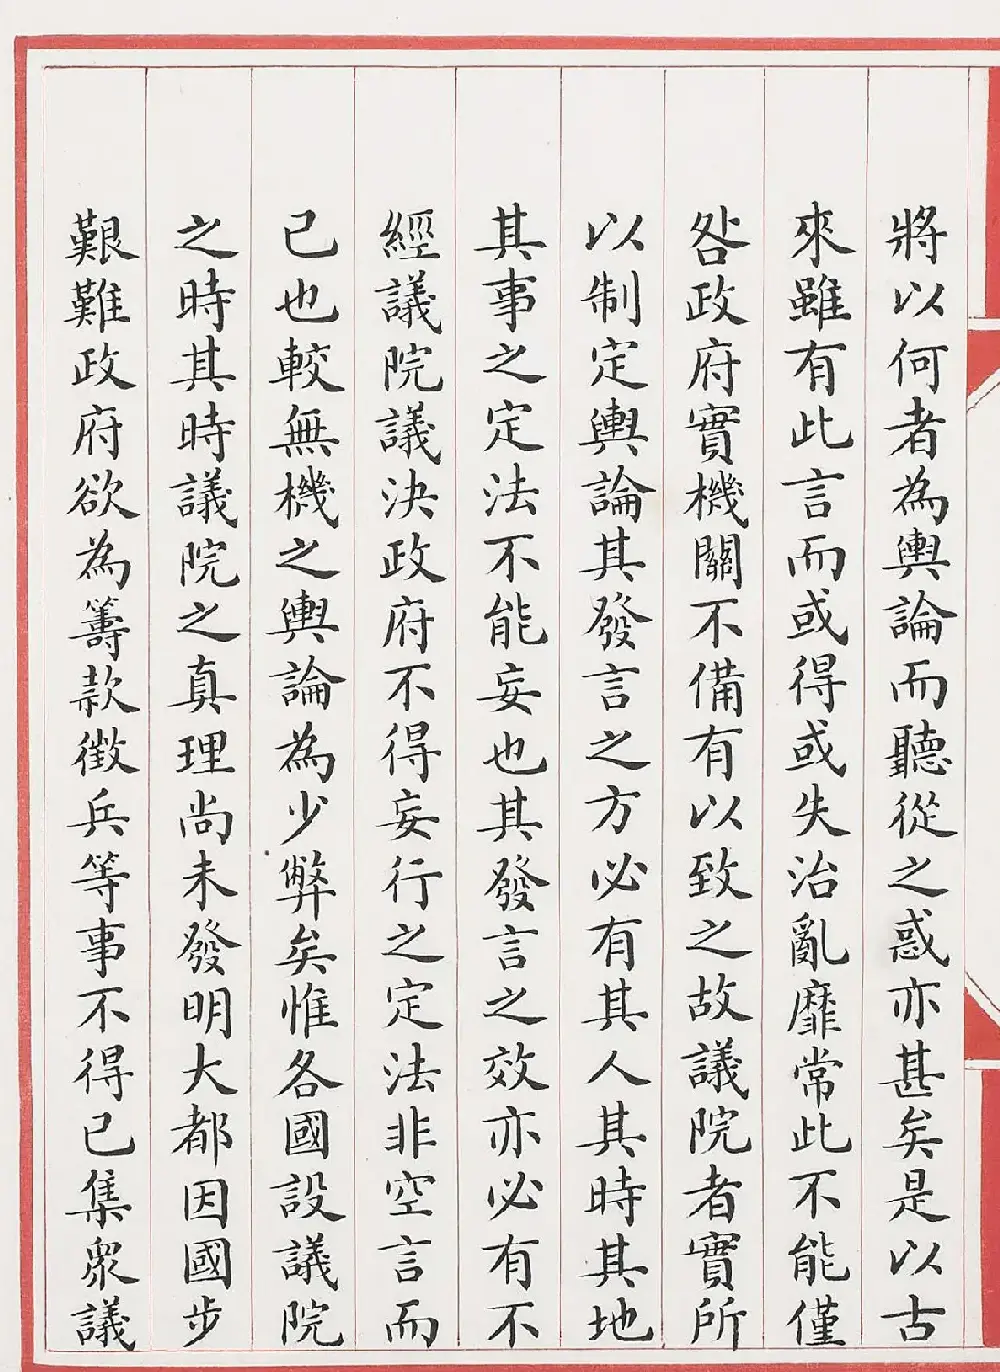 將以何者為輿論而聽從之惑亦甚矣是以古
來雖有此言而或得或失治亂靡常此不能僅
咎政府實機關不備有以致之故議院者實所
以制定輿論其發言之方必有其人其時其地
其事之定法不能妄也其發言之效亦必有不
經議院議決政府不得妄行之定法非空言而
已也較無機之輿論為少弊矣惟各國設議院
之時其時議院之真理尚未發明大都因國步
艱難政府欲為籌款徵兵等事不得已集眾議